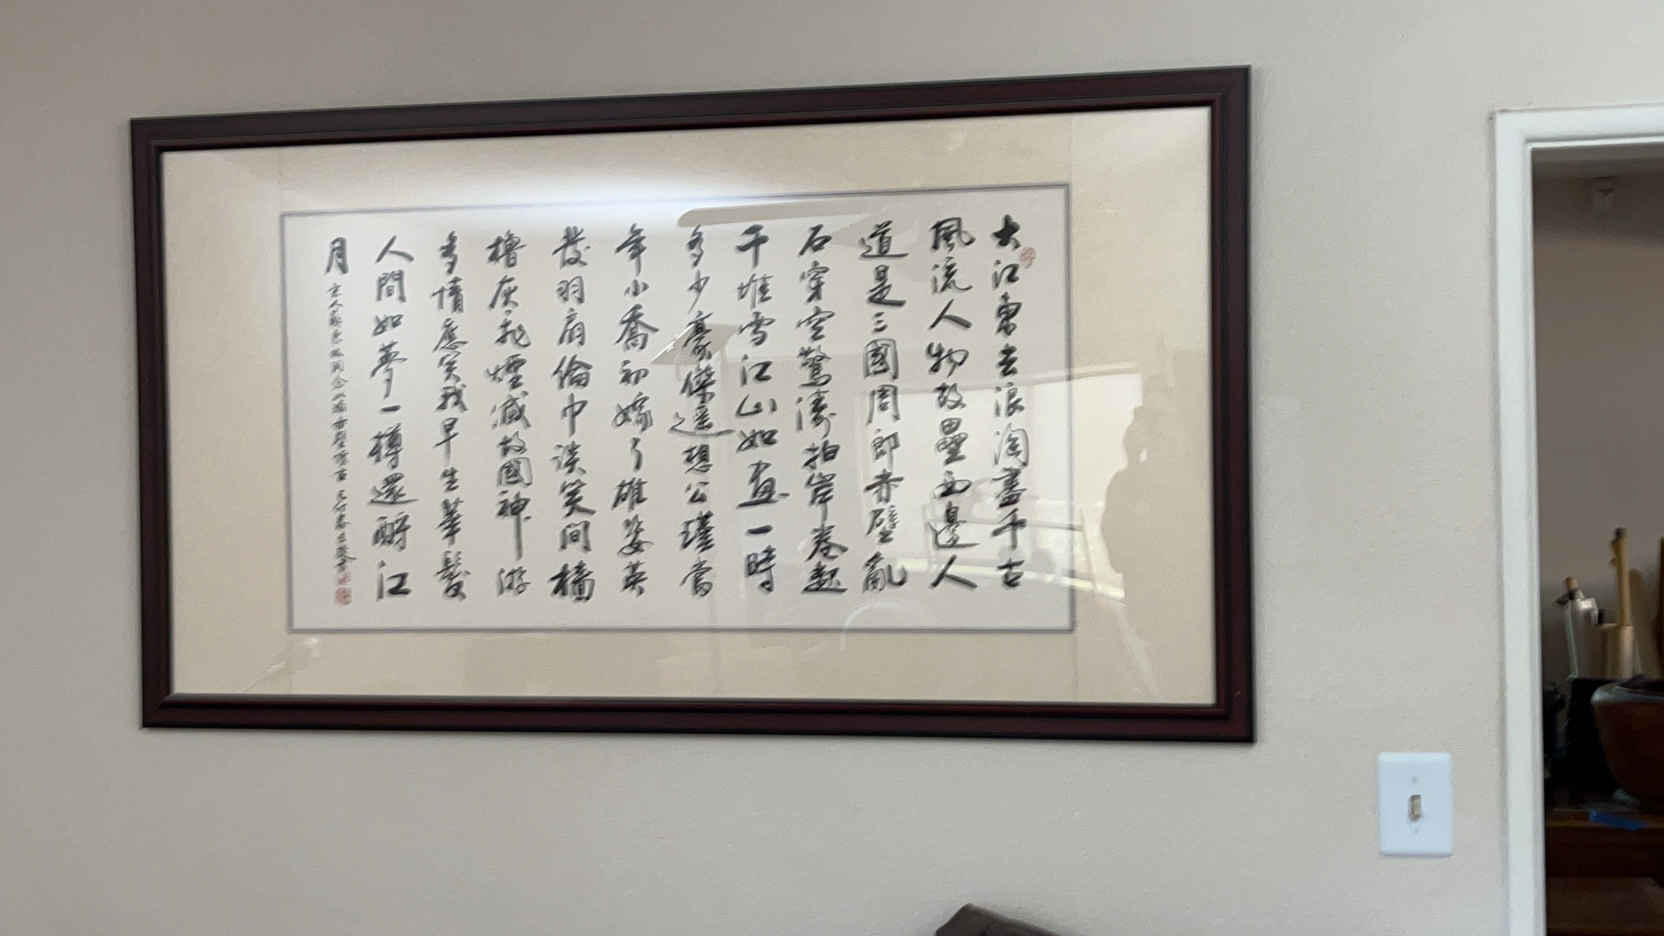 大江東去浪淘盡千古
風流人物故壘西邊人
道是三國周郎赤壁亂
石穿空驚濤拍岸卷起
千堆雪江山如畫一時
多少豪傑遥想公瑾當
年小喬初嫁了雄姿英
發羽扇倫巾談笑間檣
櫓灰飛煙滅故國神游
多情應笑我早生華髮
人間如夢一樽還酹江
月